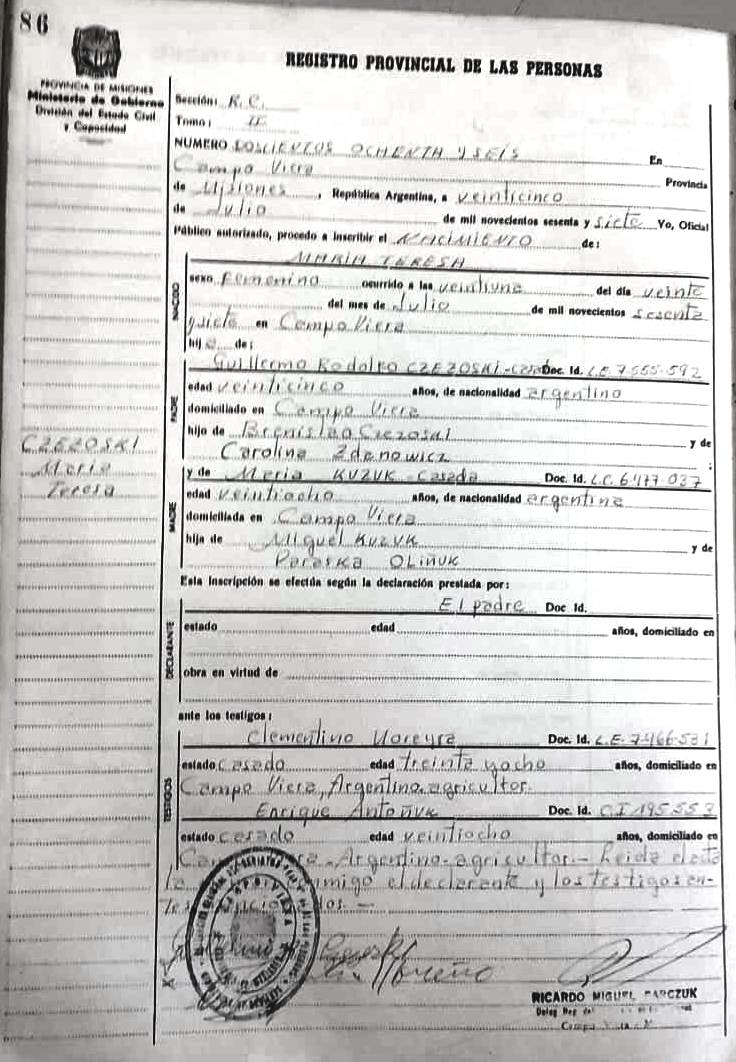 86
PROVINCIA DE MISIONES
Ministerio de Gobierno
División del Estado Civil
y Capacidad
REGISTRO PROVINCIAL DE LAS PERSONAS
Sección: R.C.
Tomo: II
NUMERO DOSCIENTOS OCHENTA Y SEIS En
Campo Viera Provincia
de Misiones, República Argentina, a veinticinco
de Julio de mil novecientos sesenta y siete Yo, Oficial
Público autorizado, procedo a inscribir el NACIMIENTO de:
MARIA TERESA
NACIDO
sexo Femenino ocurrido a las veintiuna del día veinte
del mes de Julio de mil novecientos sesenta
y siete en Campo Viera
hija de:
PADRE
Guillermo Rodolfo CZEZOSKI-casado Doc. Id. L.E. 7.555-592
edad veinticinco años, de nacionalidad argentino
domiciliado en Campo Viera
hijo de Brenislao Czezoski y de
Carolina Zdanowicz ;
CZEZOSKI
Maria
Teresa
MADRE
y de Maria KUZUK-casada Doc. Id. L.C. 6.477-037
edad veintiocho años, de nacionalidad argentina
domiciliada en Campo Viera
hija de Miguel KUZUK y de
Paraska OLIÑUK
Esta inscripción se efectúa según la declaración prestada por:
DECLARANTE
El padre Doc Id.
estado edad años, domiciliado en
obra en virtud de
ante los testigos:
TESTIGOS
Clementino Doc. Id. L.E. 7.466-531
estado casado edad treinta y ocho años, domiciliado en
Campo Viera, Argentino, agricultor.
Enrique Antoñuk Doc. Id. C.I 195.553
estado casado edad veintiocho años, domiciliado en
Argentino-agricultor.- Leida el acta
el declarante y los testigos an-
RICARDO MIGUEL